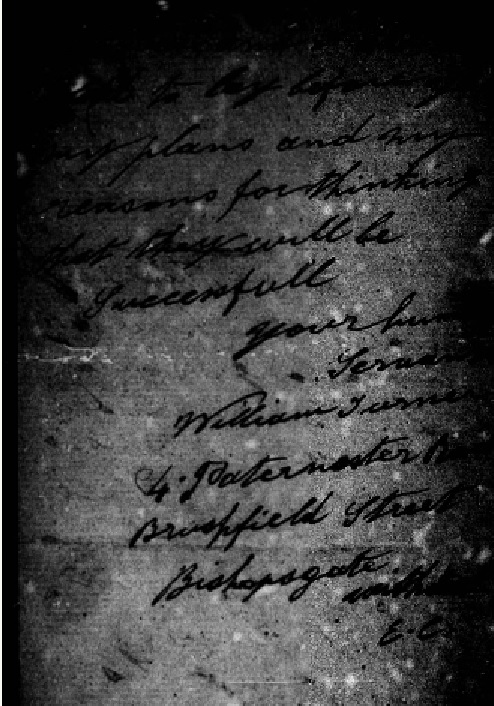 to lay before y
my plans and my
reasons for thinking
that they will be
Successfull
your hum
Servan
William Turne
4. Paternoster R
Brushfield Street
Bishopsgate witho
E.C.